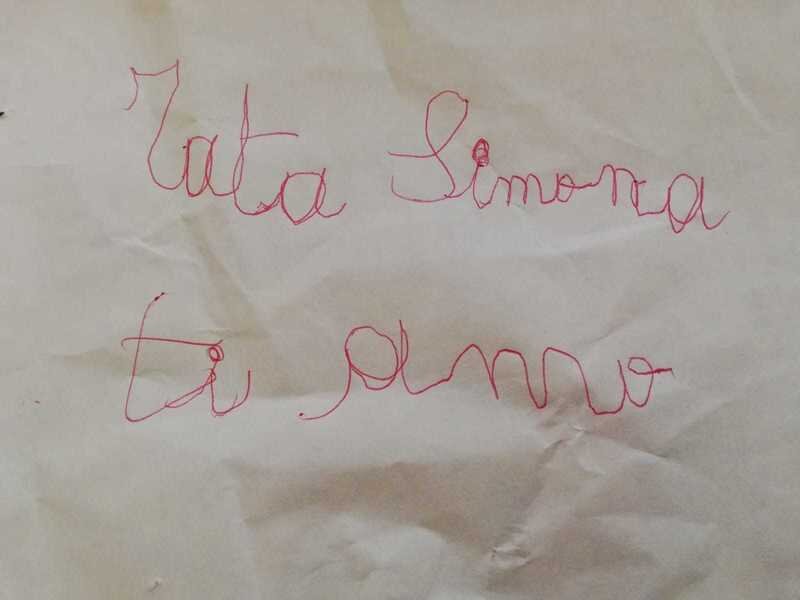 Tata Simona
ti amo